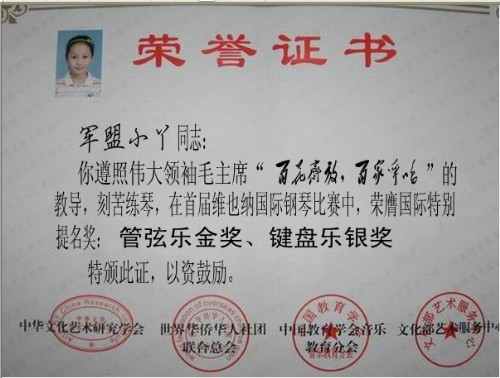 荣誉证书
军盟小丫同志:
你遵照伟大领袖毛主席“百花齐放,百家争鸣”的
教导,刻苦练琴,在首届维也纳国际钢琴比赛中,荣膺国际特别
提名奖:管弦乐金奖、键盘乐银奖
特颁此证,以资鼓励。
中华文化艺术研究学会 世界华侨华人社团 中国教育学会音乐 文化部艺术服务中心
联合总会 教育分会